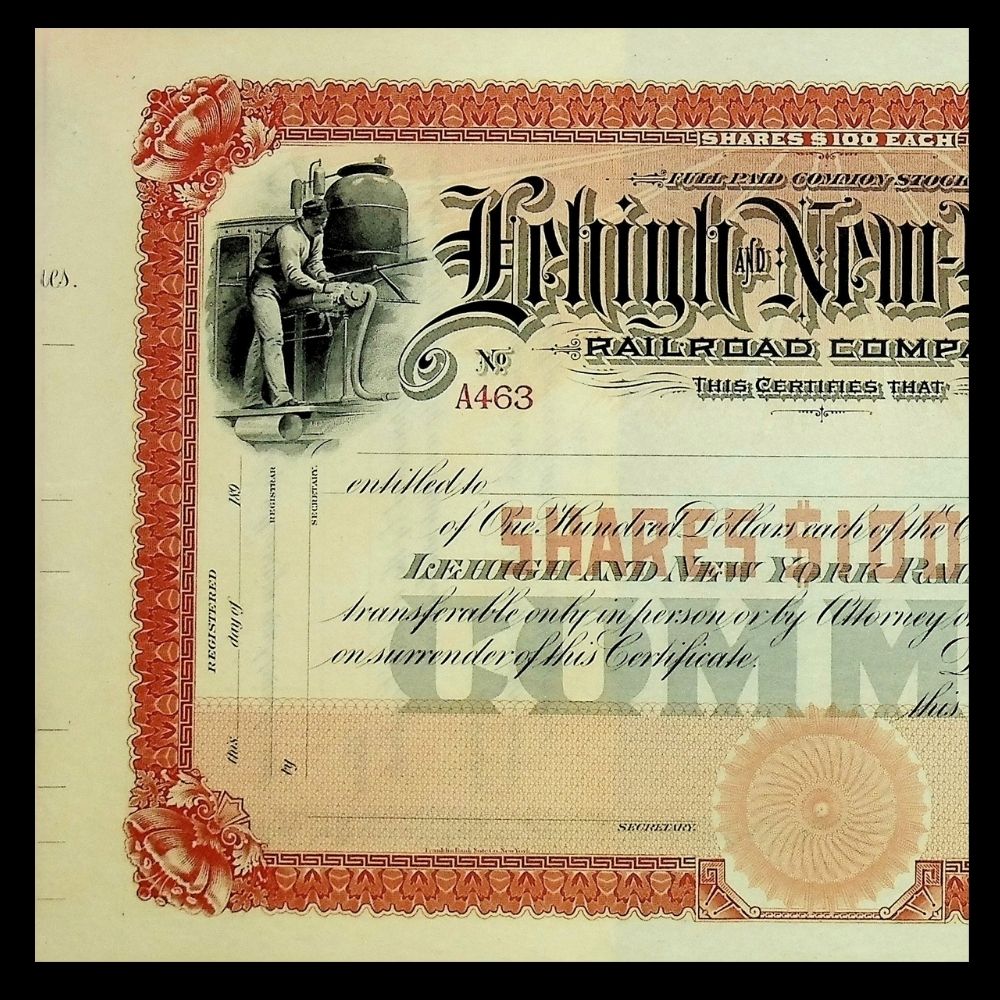 SHARES $100 EACH
FULL PAID COMMON STOCK
Lehigh AND New-
RAILROAD COMPA
No
A463
THIS CERTIFIES THAT
ues.
entitled to
SHARES $100
of One Hundred Dollars each of the C
LEHIGH AND NEW YORK RAI
transferable only in person or by Attorney o
COMM
on surrender of this Certificate.
this
REGISTERED
this day of 189
REGISTRAR
by
SECRETARY.
SECRETARY.
Franklin Bank Note Co. New York.